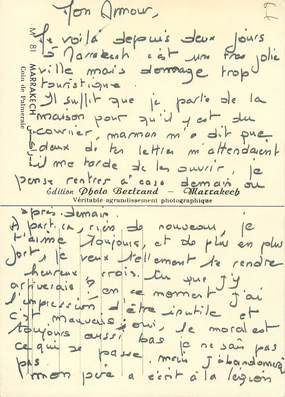 Mon Amour,
Me voilà depuis deux jours
à Marrakech c'est une très jolie
ville mais dommage trop
touristique.
Il suffit que je parte de la
maison pour qu'il y est du
courrier, maman m'a dit que
deux de tes lettres m'attendaient
il me tarde de les ouvrir, je
pense rentrer à casa demain ou
après demain.
A part ça, rien de nouveau, je
t'aime toujours, et de plus en plus
fort, je veux tellement te rendre
heureux crois tu que j'y
arriverais ? en ce moment j'ai
l'impression d'être inutile et
c'est mauvais, oui, le moral est
toujours aussi bas je ne sais pas
ce qui se passe mais j'abandonnerai
pas.
mon père a écrit à la légion
M 81 MARRAKECH
Coin de Palmeraie
Édition Photo Bertrand - Marrakech
Véritable agrandissement photographique